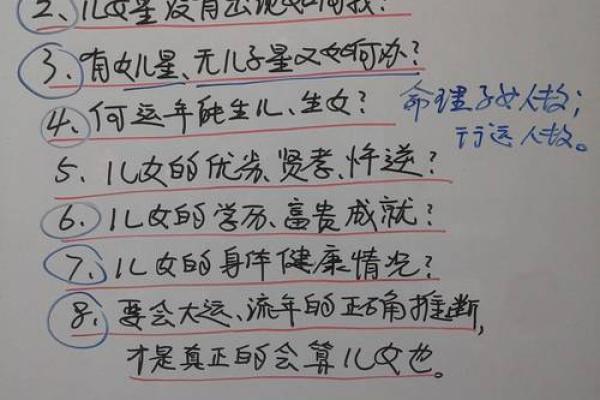 2、儿女星没有出现如何找?
3、有女儿星、无儿子星又如何办?
4、何运年能生儿、生女?
命理子女人数;
行运人数。
5、儿女的优劣、贤孝、忤逆?
6、儿女的学历、富贵成就?
7、儿女的身体健康情况?
8、要会大运、流年的正确推断,
才是真正的会算儿女也。